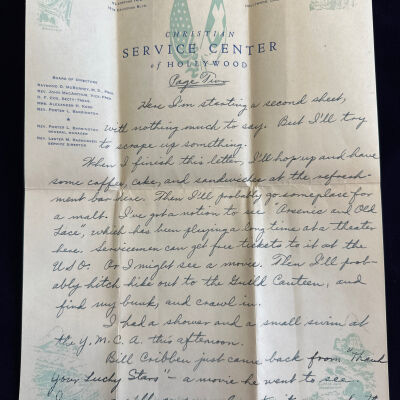 CHRISTIAN
SERVICE CENTER
of HOLLYWOOD
Page Two
BOARD OF DIRECTORS
RAYMOND D. McBURNEY, M. D., PRES.
REV. JOHN MACARTHUR, VICE-PRES.
MRS. ALEXANDER H. KERR
REV. PORTER L. BARRINGTON
REV. PORTER L. BARRINGTON
GENERAL MANAGER
SERVICE DIRECTOR
Here I'm starting a second sheet,
with nothing much to say. But I'll try
to scrape up something.
When I finish this letter, I'll hop up and have
some coffee, cake, and sandwiches at the refresh-
ment bar here. Then I'll probably go someplace for
a malt. I've got a notion to see "Arsenic and Old
Lace", which has been playing a long time at a theater
here. Servicemen can get free tickets to it at the
USO. Or I might see a movie. Then I'll prob-
ably hitch hike out to the Guild Canteen, and
find my bunk, and crawl in.
I had a shower and a small swim at
the Y.M.C.A. this afternoon.
Bill Cribben just came back from "Thank
Your Lucky Stars" - a movie he went to see.